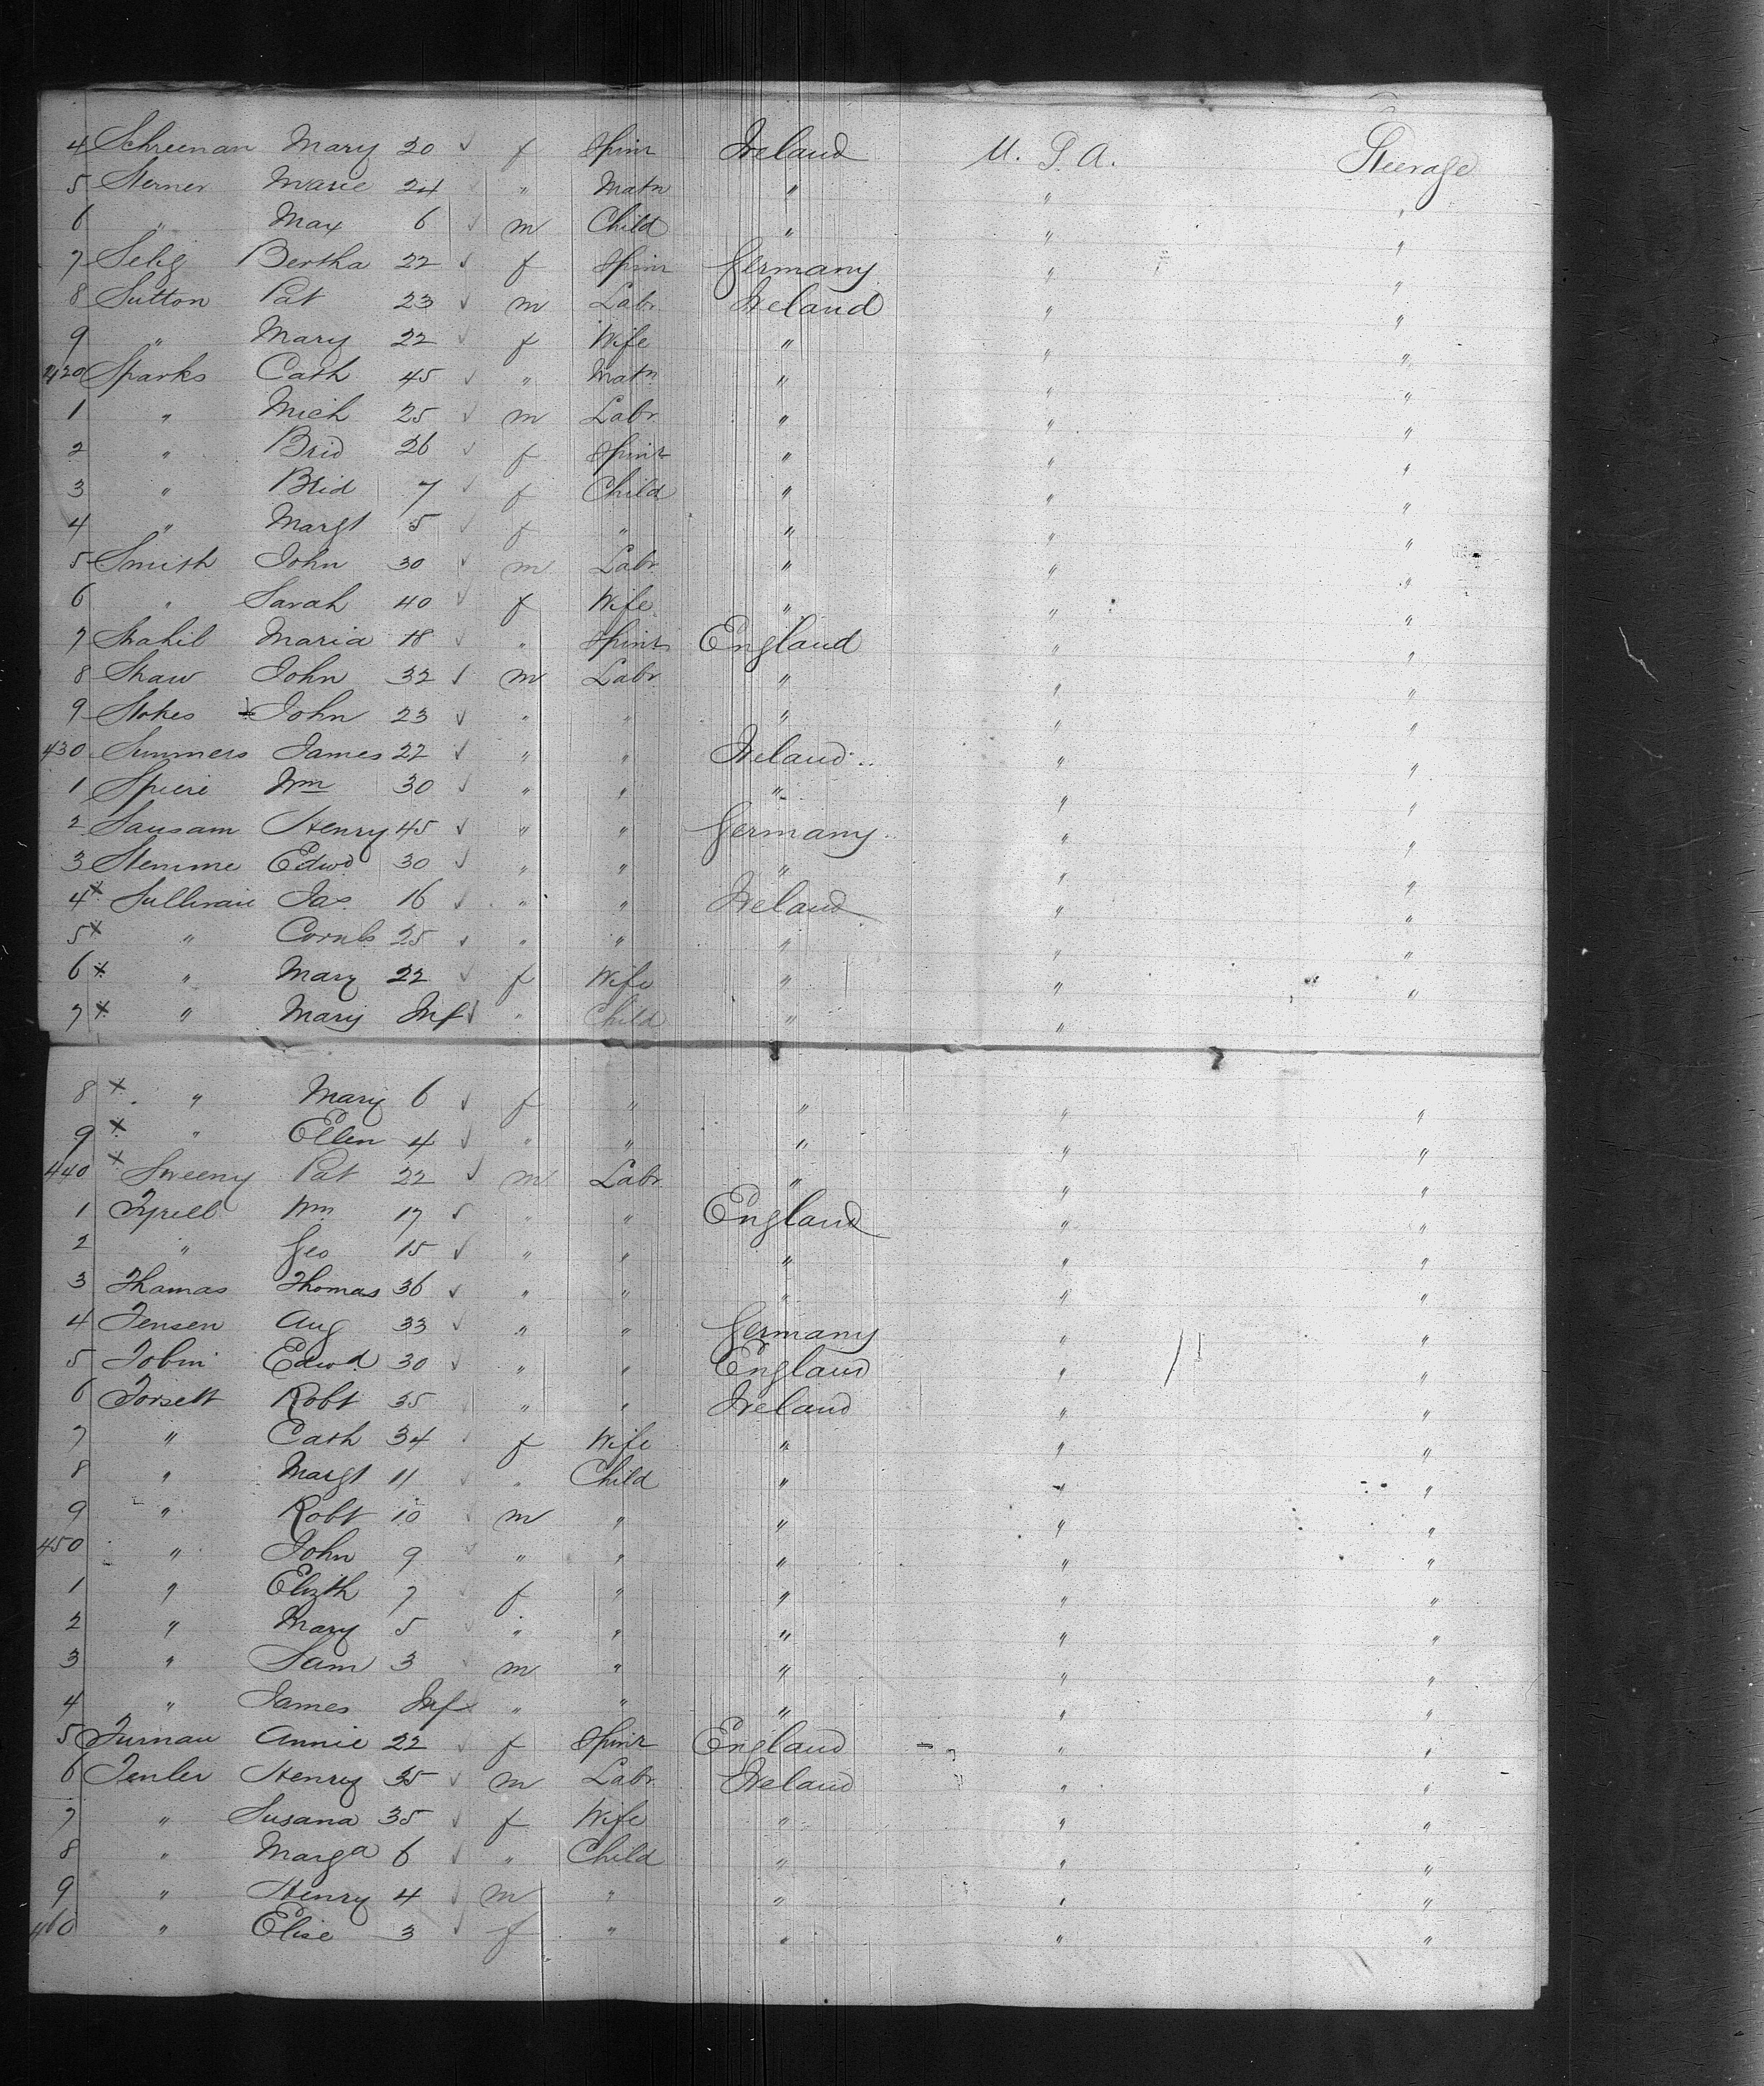 4 Schreenan Mary 20 ✓ f Spinr Ireland U.S.A. Steerage
5 Sterner Marie 24 ✓ " Matn " " "
6 " Max 6 ✓ m Child " " "
7 Selig Bertha 22 ✓ f Spinr Germany " "
8 Sutton Pat 23 ✓ m Labr Ireland " "
9 " Mary 22 ✓ f Wife " " "
420 Sparks Cath 45 ✓ " Matn " " "
1 " Mich 25 ✓ m Labr " " "
2 " Brid 26 ✓ f Spinr " " "
3 " Brid 7 ✓ f Child " " "
4 " Margt 5 ✓ f " " " "
5 Smith John 30 ✓ m Labr " " "
6 " Sarah 40 ✓ f Wife " " "
7 Shahil Maria 18 ✓ " Spinr England " "
8 Shaw John 32 ✓ m Labr " " "
9 Stokes John 23 ✓ " " " " "
430 Summers James 22 ✓ " " Ireland " "
1 Wm 30 ✓ " " " " "
2 Sausam Henry 45 ✓ " " Germany " "
3 Stemme Edwd 30 ✓ " " " " "
4 x Sullivan Jas 16 ✓ " " Ireland " "
5 x " Cornls 25 ✓ " " " " "
6 x " Mary 22 ✓ f Wife " " "
7 x " Mary Inf ✓ " Child " "
8 x " Mary 6 ✓ f " " " "
9 x " Ellen 4 ✓ " " " " "
440 x Sweeny Pat 22 ✓ m Labr " " "
1 Tyrell Wm 17 ✓ " " England " "
2 " Geo 15 ✓ " " " " "
3 Thamas Thomas 36 ✓ " " " " "
4 Tensen Aug 33 ✓ " " Germany " "
5 Tobin Edwd 30 ✓ " " England " "
6 Torsett Robt 35 ✓ " " Ireland " "
7 " Cath 34 ✓ f Wife " " "
8 " Margt 11 ✓ " Child " " "
9 " Robt 10 ✓ m " " " "
450 " John 9 ✓ " " " " "
1 " Elizth 7 ✓ f " " " "
2 " Mary 5 ✓ " " " " "
3 " Sam 3 ✓ m " " " "
4 " James Inf " " " " "
5 Turnau Annie 22 ✓ f Spinr England " "
6 Tenler Henry 35 ✓ m Labr Ireland " "
7 " Susana 35 ✓ f Wife " " "
8 " Marga 6 ✓ " Child " " "
9 " Henry 4 ✓ m " " " "
460 " Elise 3 ✓ f " " " "